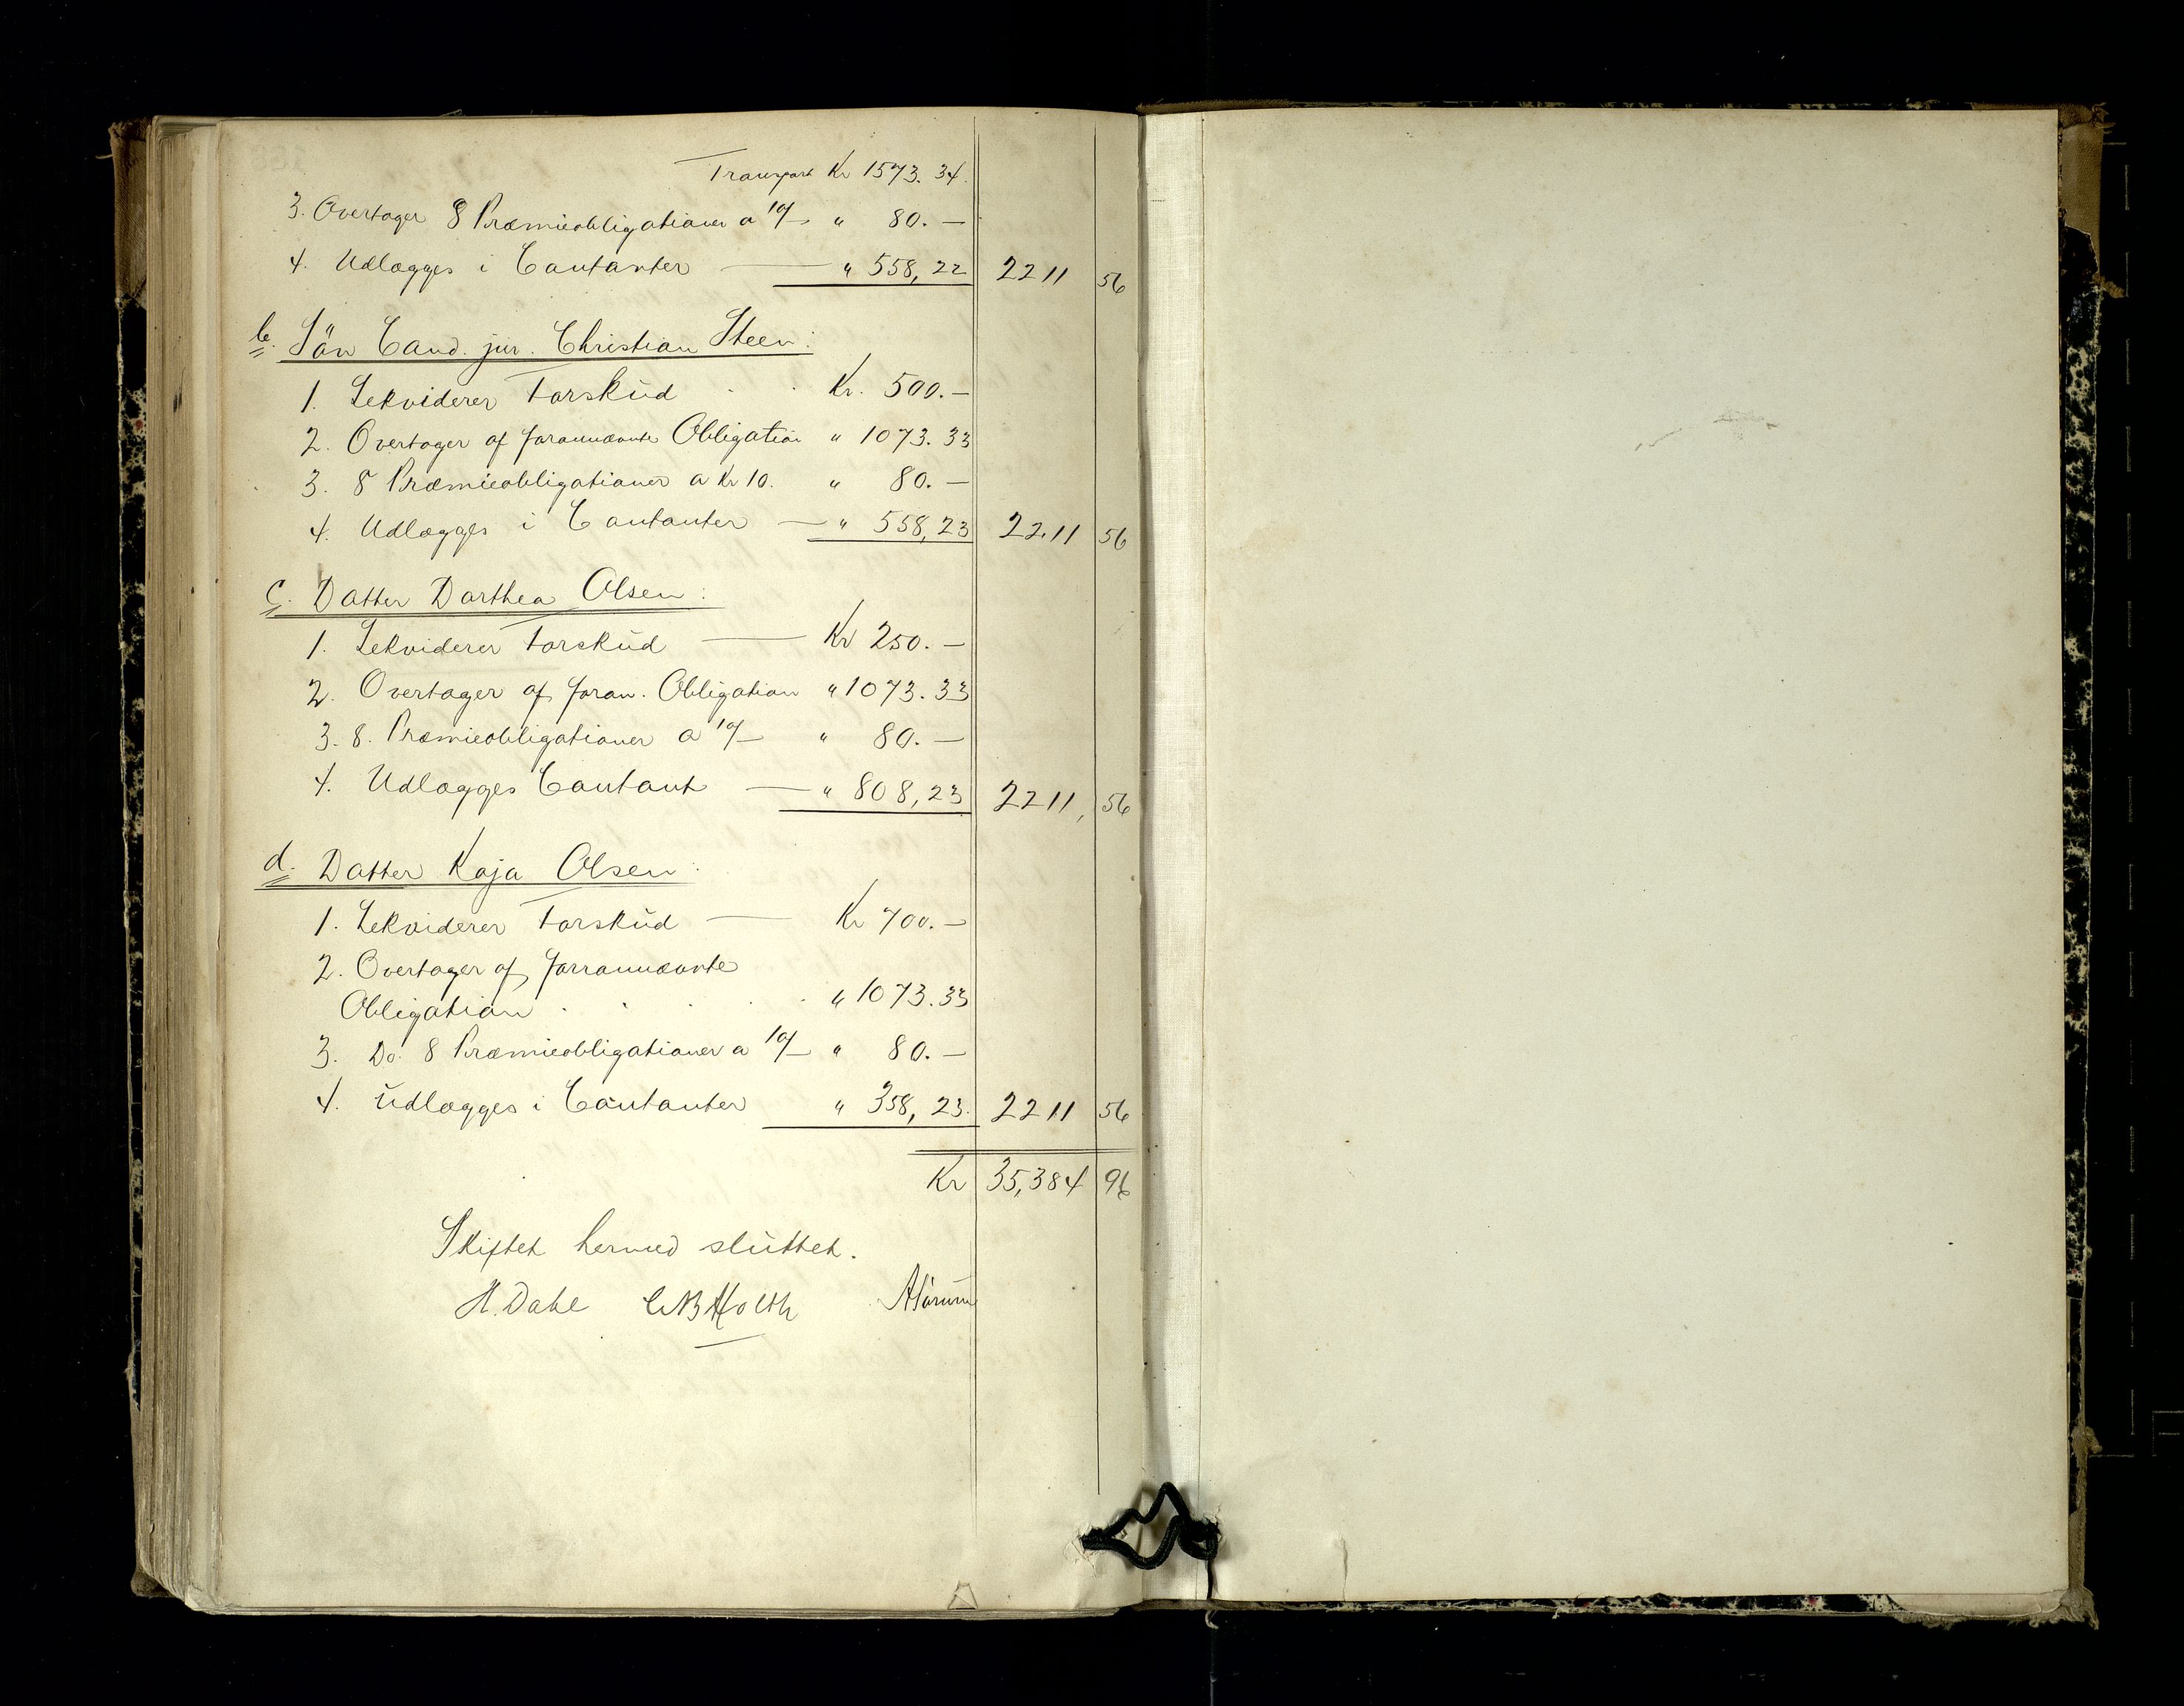 Transport Kr 1573. 34.
3. Overtager 8 Præmieobligationer a 10/- " 80. —
4. Udlægges i Contanter — " 558, 22 2211 56
b. Sön Cand. jur. Christian Steen:
1. Lekviderer Forskud . . Kr. 500. —
2. Overtager af forannævnte Obligation " 1073. 33
3. 8 Præmieobligationer a Kr 10. " 80. —
4. Udlægges i Contanter — " 558, 23 2211 56
c. Datter Dorthea Olsen:
1. Lekviderer Forskud — Kr 250. —
2. Overtager af foran. Obligation " 1073. 33
3. 8. Præmieobligationer a 10/- " 80. —
4. Udlægges Contant — " 808, 23 2211, 56
d. Datter Kaja Olsen:
1. Lekviderer Forskud — Kr 700. —
2. Overtager af forrannævnte
Obligation . . . . " 1073. 33
3. Do. 8 Præmieobligationer a 10/- " 80. —
4. Udlægges i Contanter " 358, 23. 2211 56
Kr 35,384 96
Skiftet hermed sluttet.
H. Dahl CB Holth